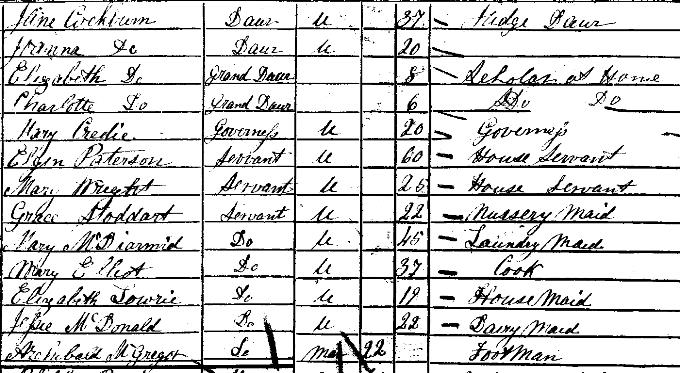 Jane Cockburn Daur U 37 Judge Daur
Joanna Do Daur U 20
Elizabeth Do Grand Daur 8 Scholar at Home
Charlotte Do Grand Daur 6 Do Do
Mary Credie Governess U 20 Governess
Ellen Paterson Servant U 60 House Servant
Mary Wright Servant U 25 House Servant
Grace Stoddart Servant U 22 Nursery Maid
Mary McDiarmid Do U 45 Laundry Maid
Mary Elliot Do U 37 Cook
Elizabeth Lowrie Do U 19 House Maid
Jessie McDonald Do U 22 Dairy Maid
Archibald McGregor Do Mar 22 Foot Man